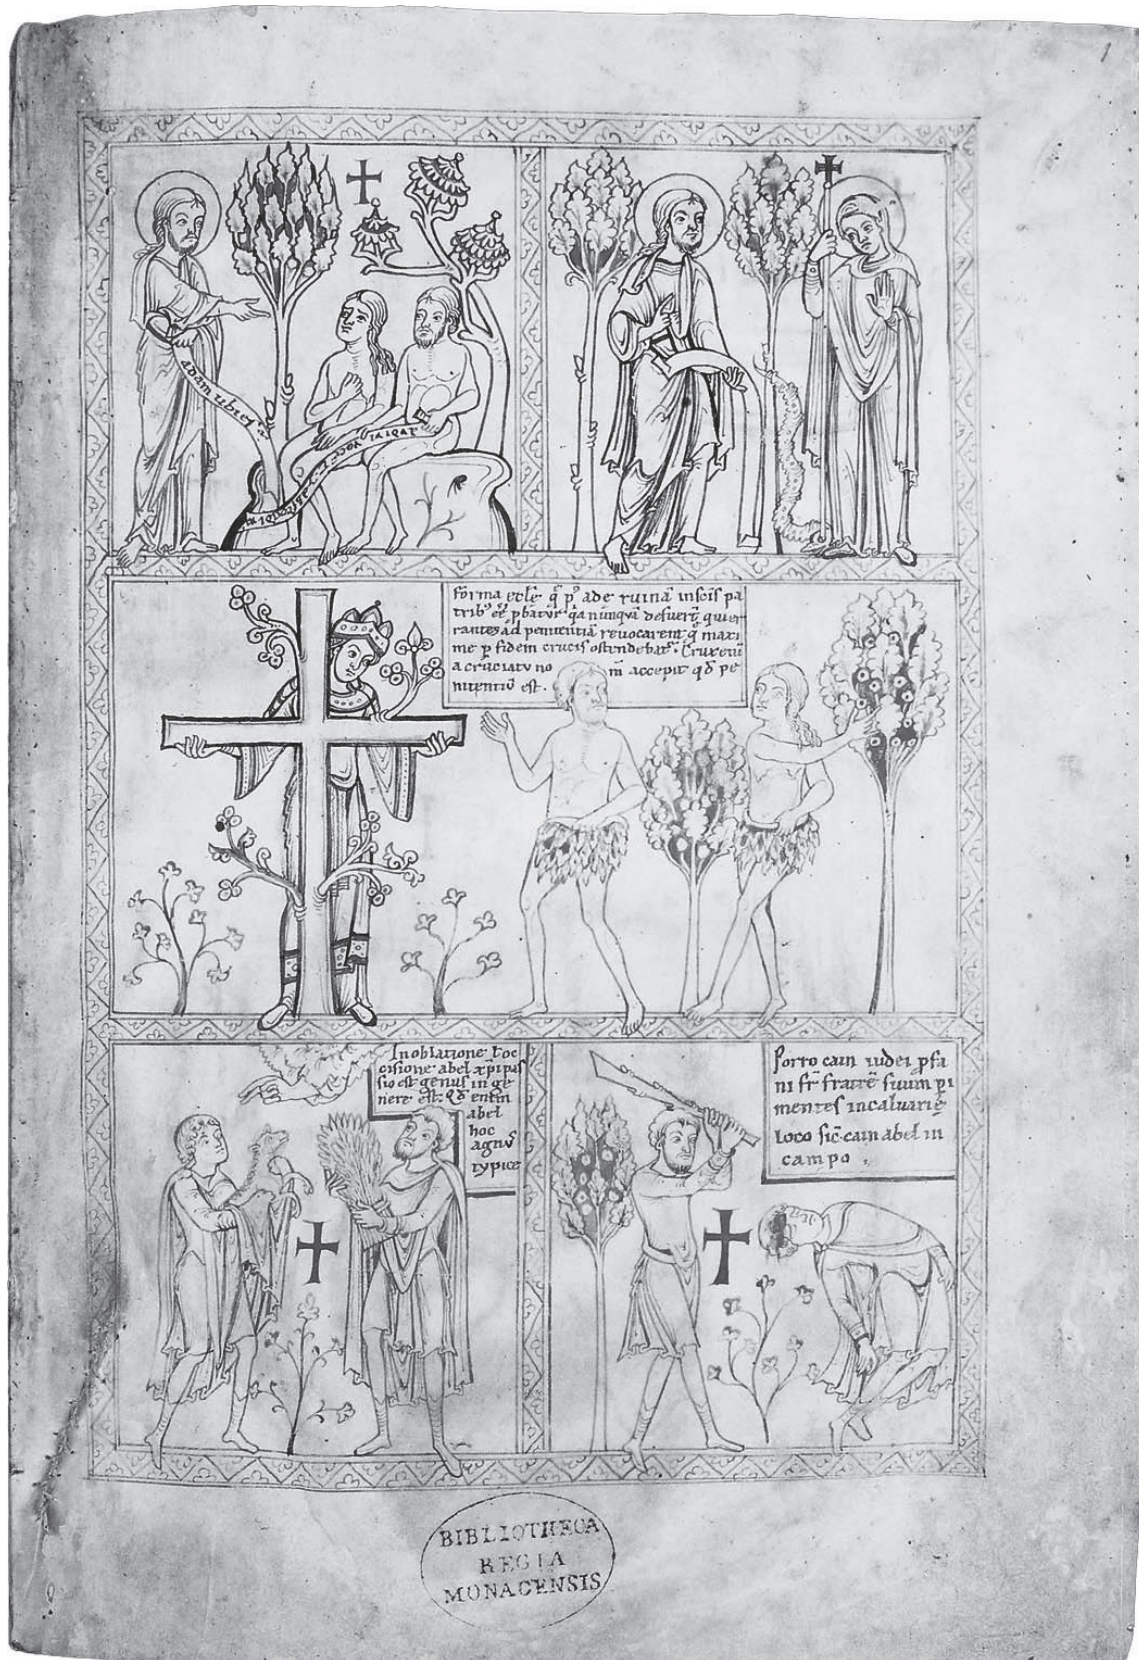 1
adam ubi es
forma eccłe q̃ p⁹ ade ruinā in scīs pa
trib⁹ eē p̱batur q̇a nūnquā defuert̄ qui er
rantes ad penitentiā revocarent q̃ maxi
me p̱ fidem crucis ostendebat᷑. Crux enī
a cruciatu no
m̄ accepit qd̄ pe
nitentiū est.
In oblatione ⁊ oc
cisione abel xp̄i pas
sio est genus in ge
nere est. Qd̄ enim
abel
hoc
agnus
typice
Porro cain iudei p̱fa
ni sr̄ fratrē suum p̱i
mentes in calvarię
loco sic̄ cain abel in
campo.
BIBLIOTHECA
REGIA
MONACENSIS